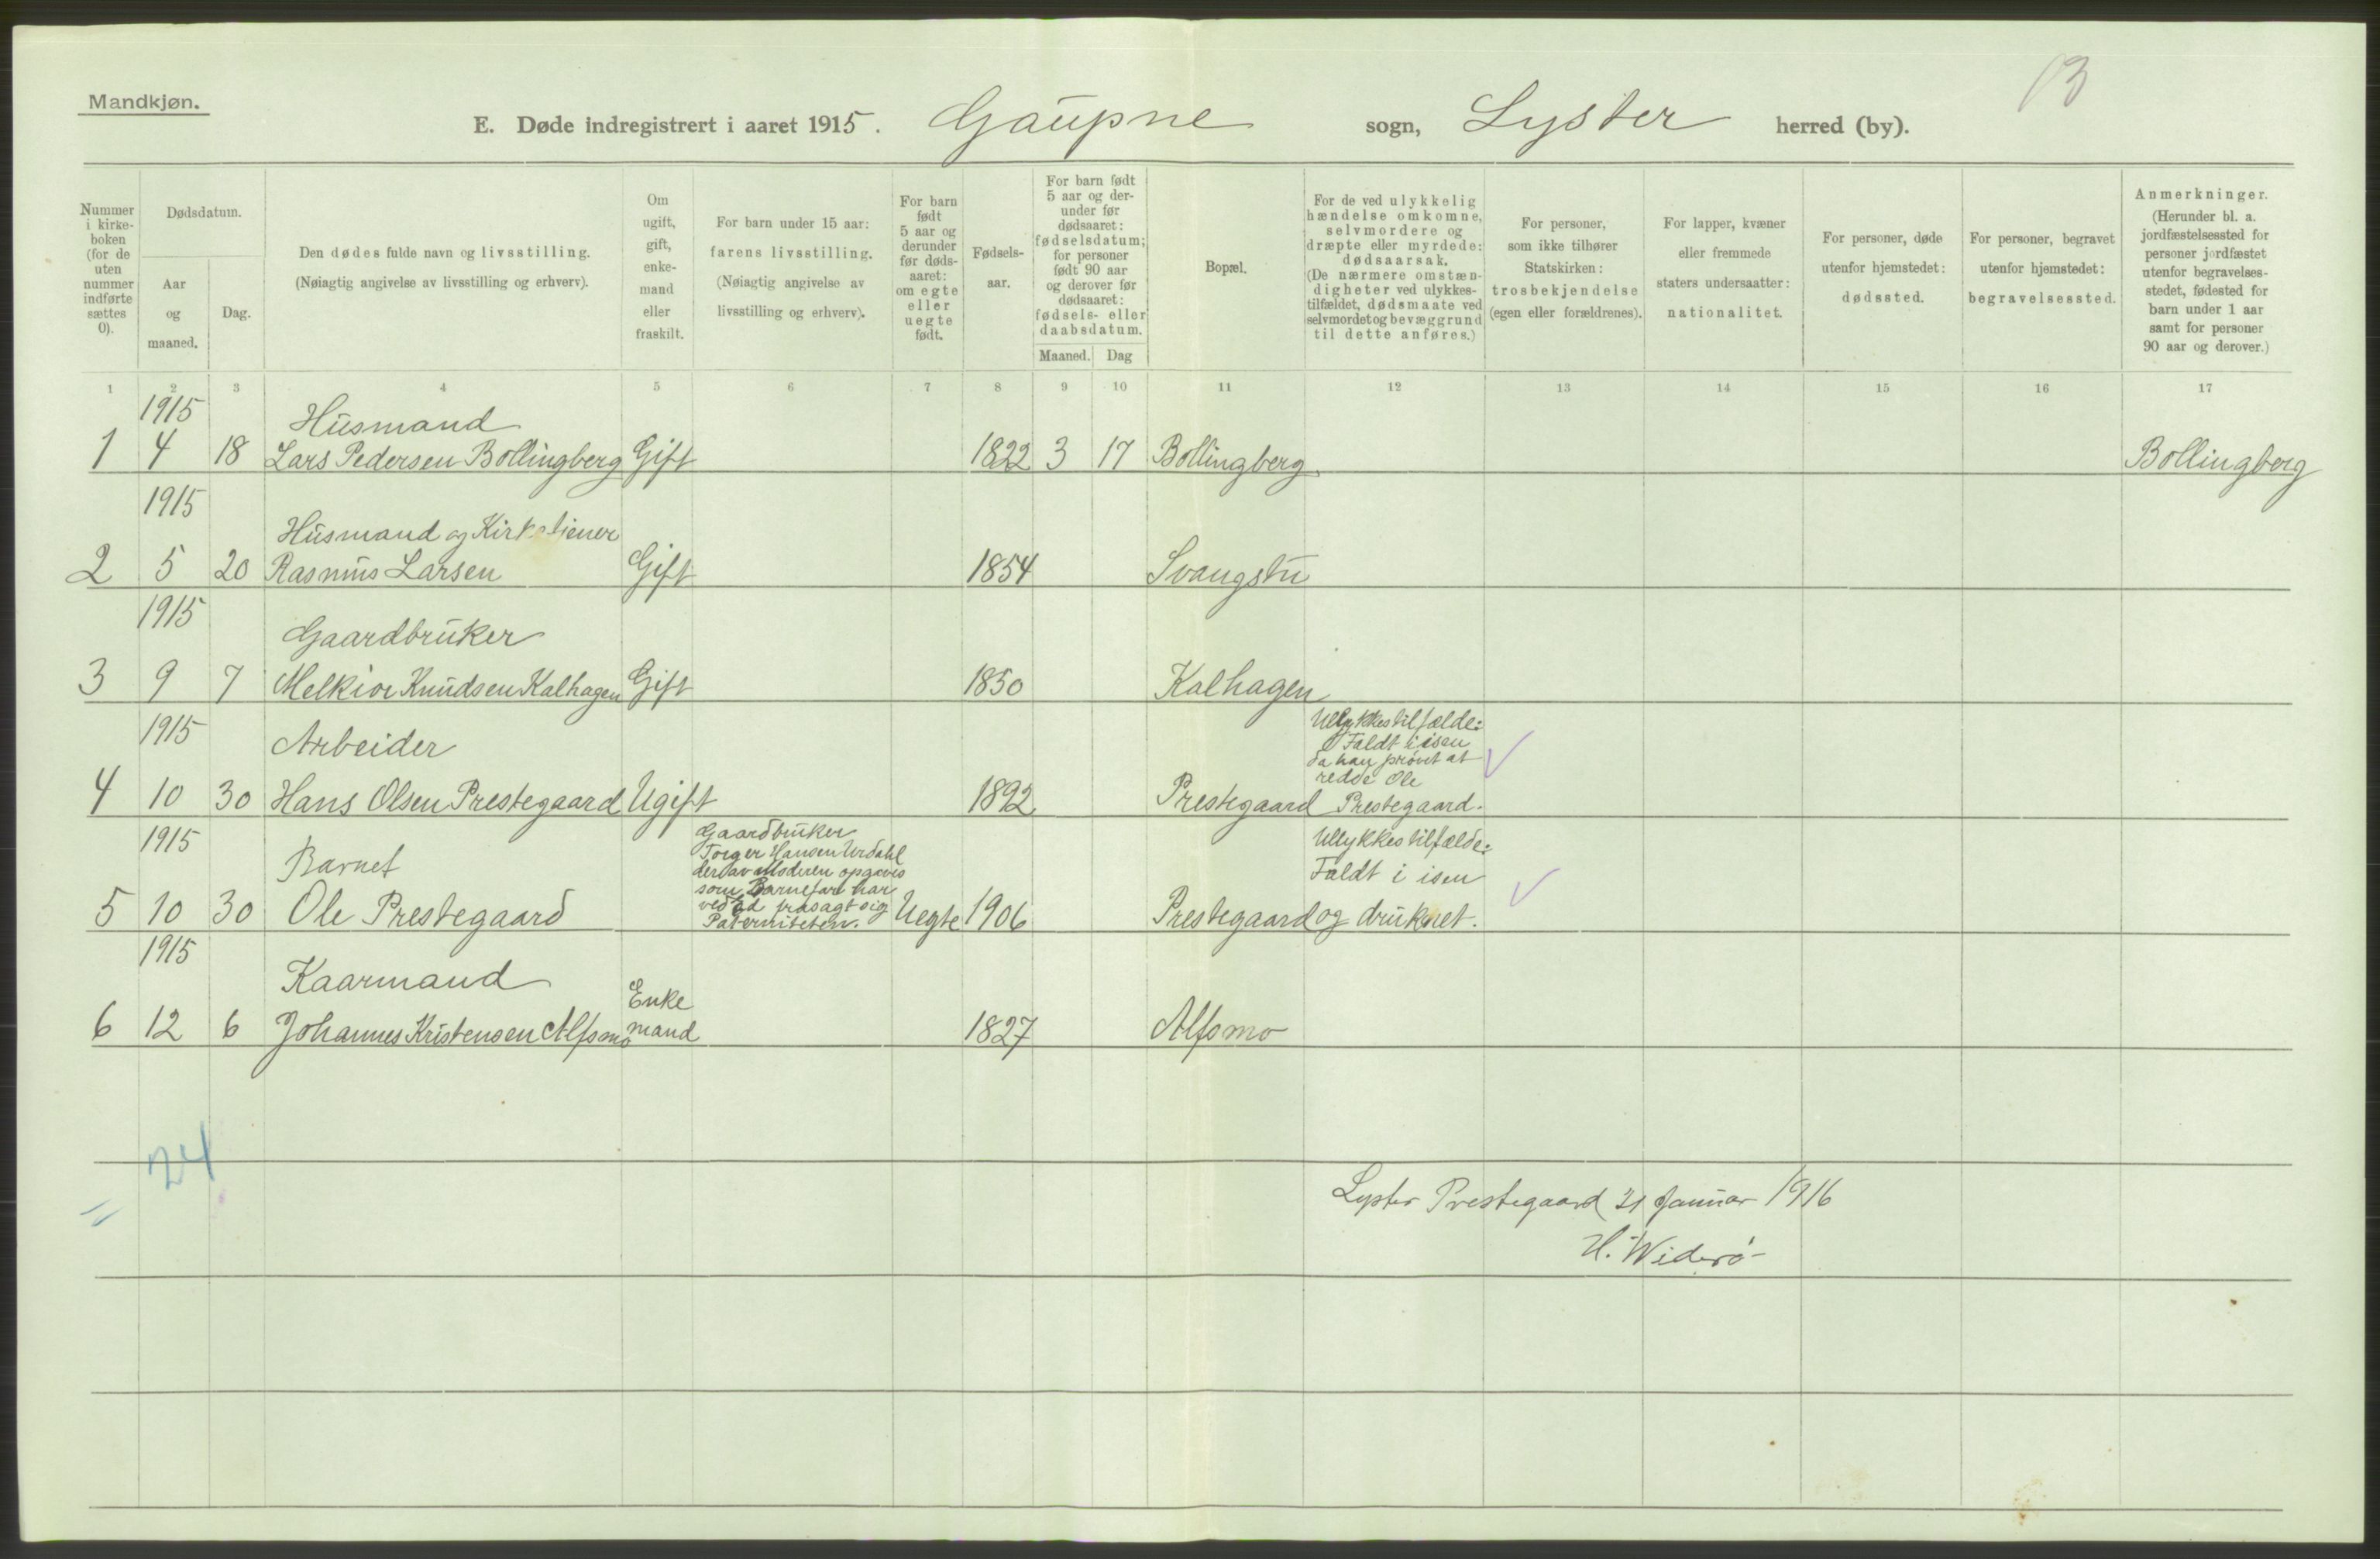 Mandkjøn.
13
E. Døde indregistrert i aaret 1915. Gaupne sogn, Lyster herred (by).
Nummer i kirkeboken (for de uten nummer indførte sættes 0).
Dødsdatum.
Aar og maaned.
Dag.
Den dødes fulde navn og livsstilling.
(Nøiagtig angivelse av livsstilling og erhverv).
Om ugift, gift, enkemand eller fraskilt.
For barn under 15 aar:
farens livsstilling.
(Nøiagtig angivelse av
livsstilling og erhverv).
For barn født 5 aar og derunder før dødsaaret: om egte eller uegte født.
Fødselsaar.
For barn født 5 aar og derunder før dødsaaret: fødselsdatum; for personer født 90 aar og derover før dødsaaret: fødsels- eller daabsdatum.
Maaned. Dag
Bopæl.
For de ved ulykkelig hændelse omkomne, selvmordere og dræpte eller myrdede: dødsaarsak. (De nærmere omstændigheter ved ulykkestilfældet, dødsmaate ved selvmordet og bevæggrund til dette anføres.)
For personer, som ikke tilhører Statskirken: trosbekjendelse (egen eller forældrenes).
For lapper, kvæner eller fremmede staters undersaatter: nationalitet.
For personer, døde utenfor hjemstedet: dødssted.
For personer, begravet utenfor hjemstedet: begravelsessted.
Anmerkninger.
(Herunder bl. a. jordfæstelsessted for personer jordfæstet utenfor begravelsesstedet, fødested for barn under 1 aar samt for personer 90 aar og derover.)
1 2 3 4 5 6 7 8 9 10 11 12 13 14 15 16 17
1915 Husmand
1 4 18 Lars Pedersen Bollingberg Gift 1822 3 17 Bollingberg Bollingberg
1915
Husmand og Kirketjener
2 5 20 Rasmus Larsen Gift 1854 Svangstu
1915
Gaardbruker
3 9 7 Melkior Knudsen Kalhagen Gift 1850 Kalhagen
1915 Arbeider
Ullykkestilfælde:
Faldt i isen
da han prøvet at
redde Ole
4 10 30 Hans Olsen Prestegaard Ugift 1892 Prestegaard Prestegaard.
1915
Barnet
Gaardbruker
Torger Hansen Urdahl
der av Moderen opgaves
som Barnefar har
ved Ed frasagt sig
Paterniteten.
Ullykkestilfælde:
Faldt i isen
5 10 30 Ole Prestegaard Uegte 1906 Prestegaard og druknet.
1915
Kaarmand Enke
6 12 6 Johannes Kristensen Alfsmo mand 1827 Alfsmo
24
Lyster Prestegaard 21 Januar 1916
H. Widerø